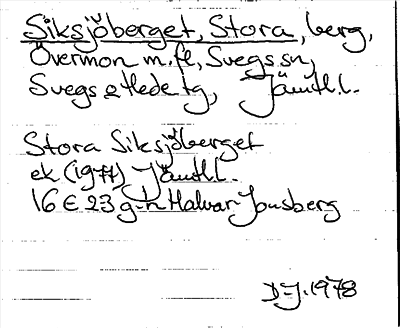 Siksjöberget, Stora, berg,
Övermon m.fl, Svegs sn,
Svegs o Hede tg, Jämtl.l.
Stora Siksjöberget
ek (1977) Jämtl.l.
16 E 23 g-h Halvar Jonsberg
D-J. 1978